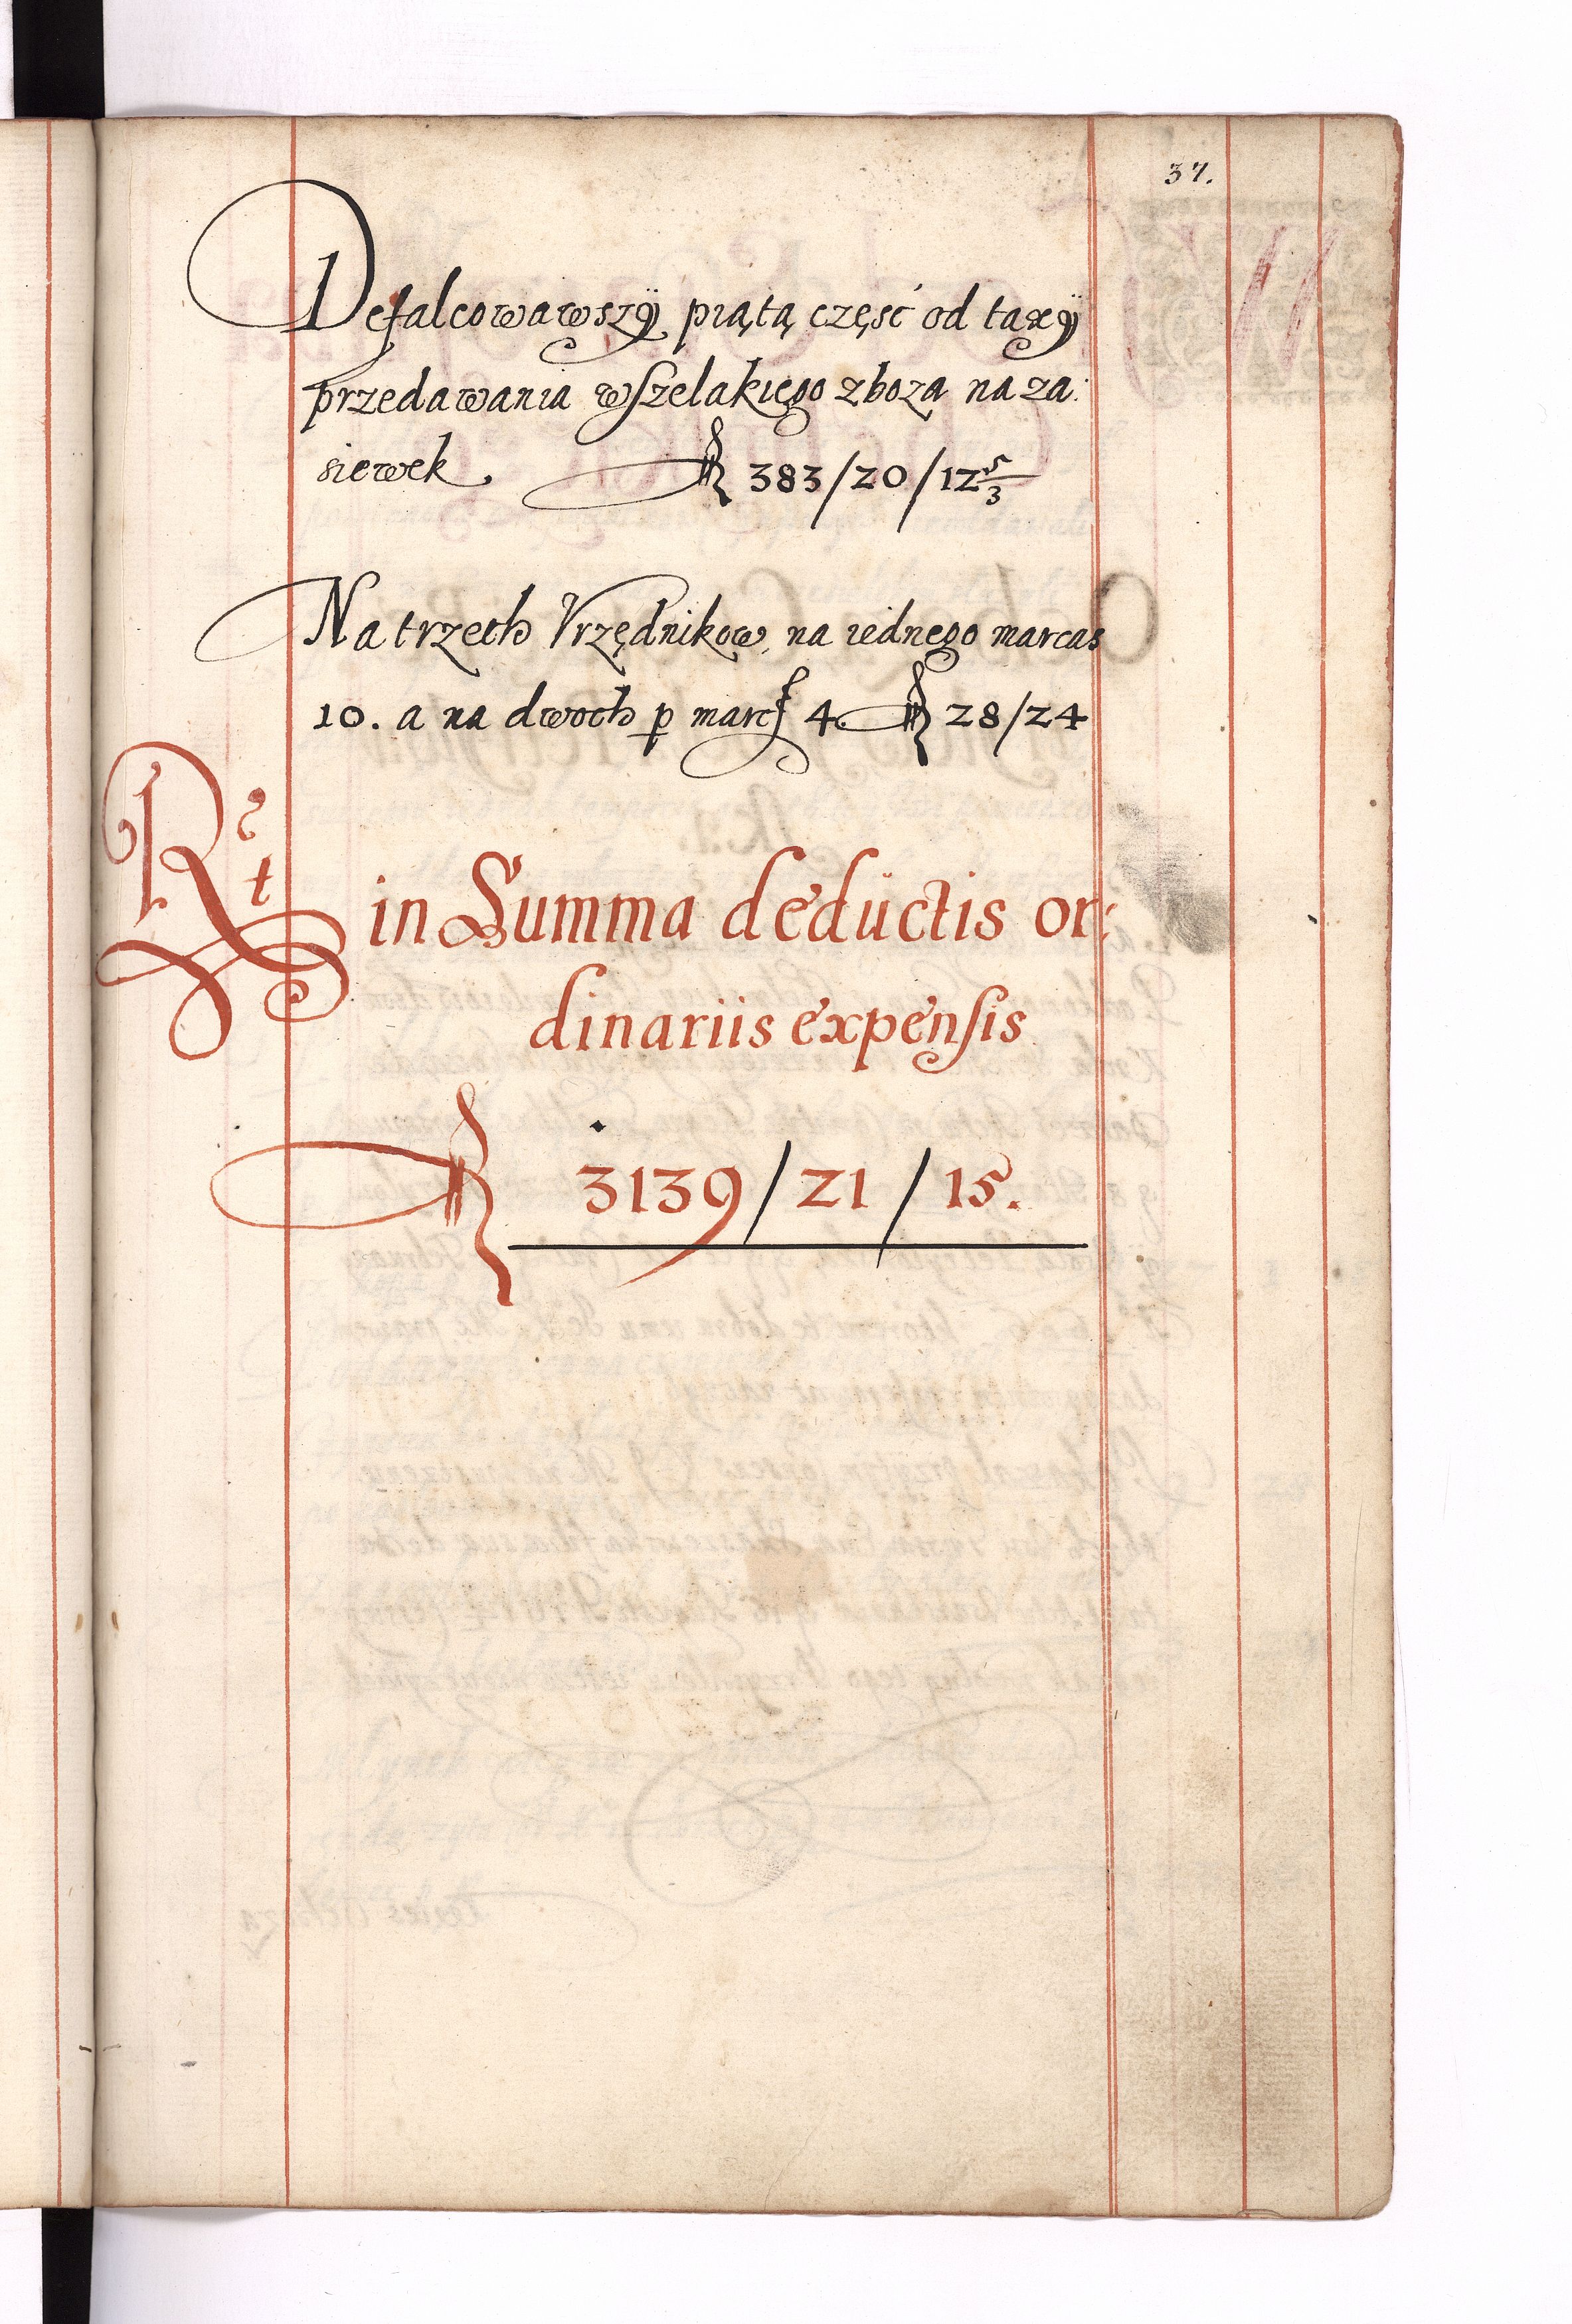 37.
Defalcowawszÿ piątą część od taxÿ
przedawania wszelakiego zboza na za:
siewek fl 383/20/12 5/3
Na trzech Vrzędnikow, na iednego marcas
10. a na dwoch p marcs 4. fl 28/24
Rt
in Summa deductis or:
dinariis expensis
fl 3139/21/15.